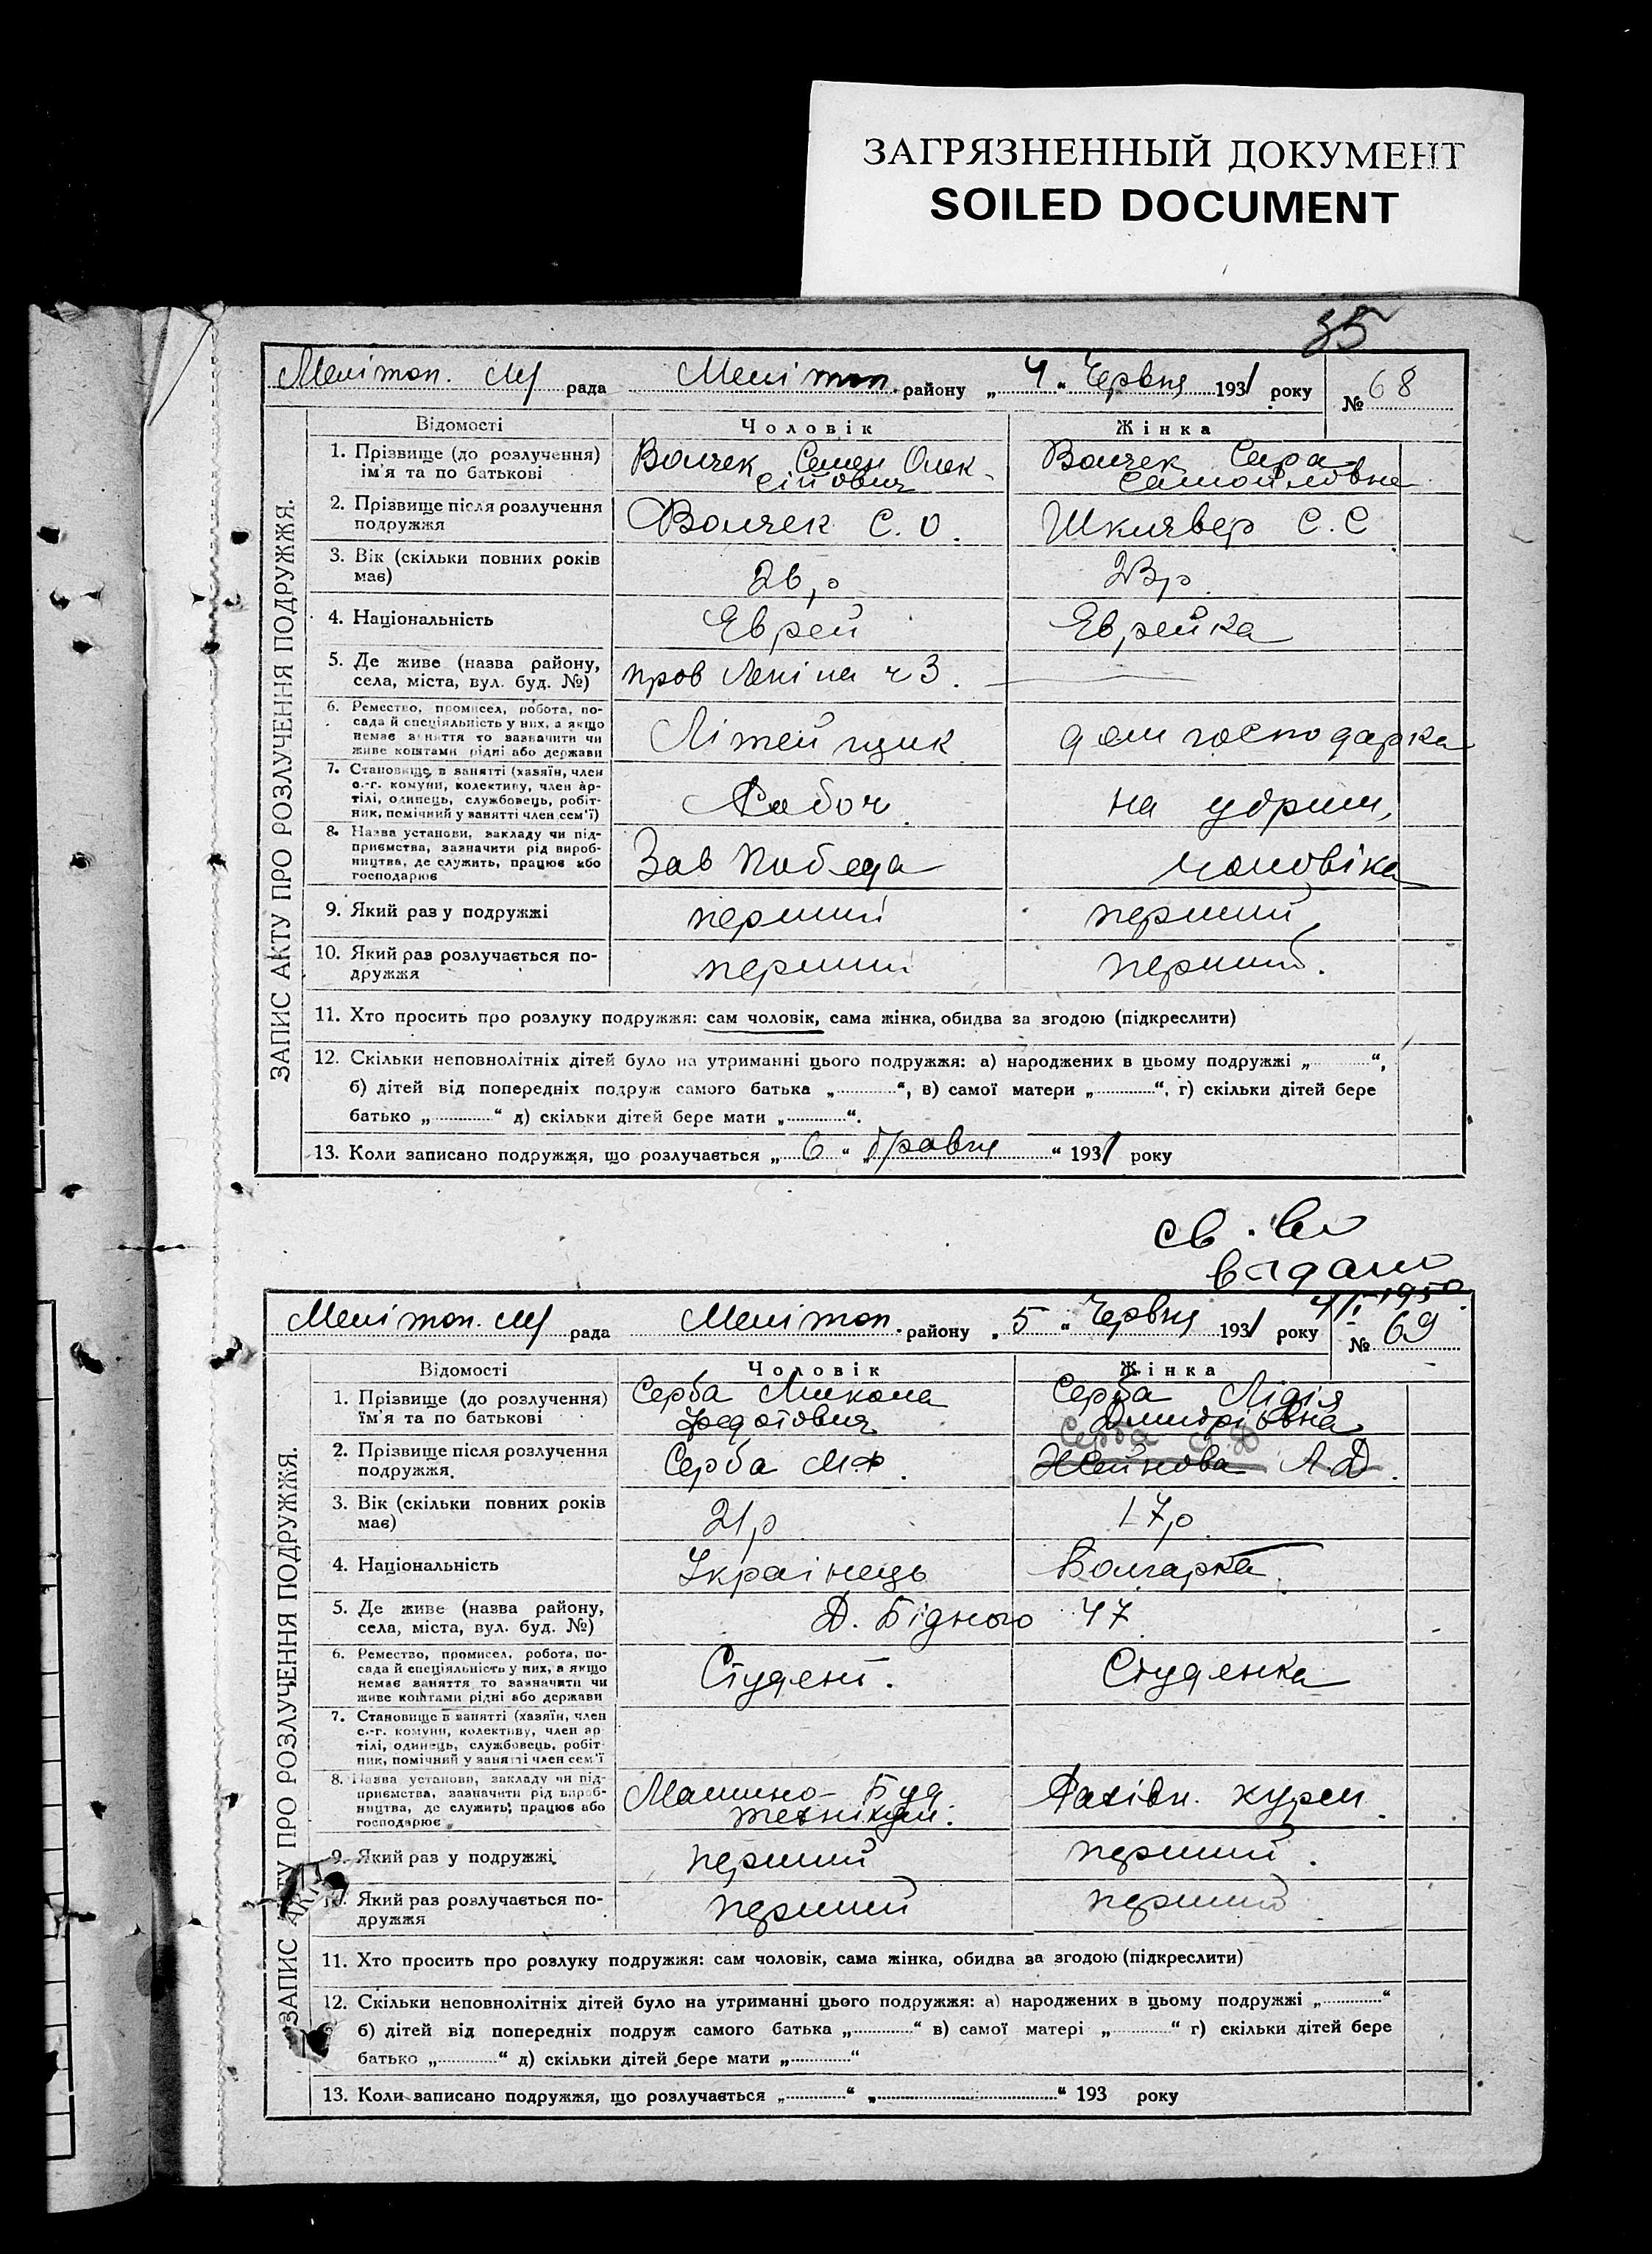 ЗАГРЯЗНЕННЫЙ ДОКУМЕНТ
SOILED DOCUMENT
35
Мелітоп. МР рада Мелітоп. району „4“ Червня 1931 року № 68
ЗАПИС АКТУ ПРО РОЗЛУЧЕННЯ ПОДРУЖЖЯ.
Відомості Чоловік Жінка
1. Прізвище (до розлучення) ім'я та по батькові Волчек Семен Олексійович Волчек Сара Самойловна
2. Прізвище після розлучення подружжя Волчек С. О. Шклявер С. С
3. Вік (скільки повних років має) 26 р 23 р
4. Національність Еврей Еврейка
5. Де живе (назва району, села, міста, вул. буд. №) пров Леніна ч 3.
6. Ремество, промисел, робота, посада й спеціяльність у них, а якщо немає заняття то зазначити чи живе коштами рідні або держави Літейщик дом господарка
7. Становище в занятті (хазяїн, член с.-г. комуни, колективу, член артілі, одинець, службовець, робітник, помічний у занятті член сем'ї) Рабоч. на утрим,
8. Назва установи, закладу чи підприємства, зазначити рід виробництва, де служить, працює або господарює Зав Победа чоловіка
9. Який раз у подружжі перший перший
10. Який раз розлучається подружжя перший перший.
11. Хто просить про розлуку подружжя: сам чоловік, сама жінка, обидва за згодою (підкреслити)
12. Скільки неповнолітніх дітей було на утриманні цього подружжя: а) народжених в цьому подружжі „..........“,
б) дітей від попередніх подруж самого батька „..........“, в) самої матери „..........“. г) скільки дітей бере
батько „..........“ д) скільки дітей бере мати „..........“.
13. Коли записано подружжя, що розлучається „6“ „Травня“ 1931 року
св. во
видано
1950
Мелітоп. МР рада Мелітоп. району „5“ Червня 1931 року № 69
ЗАПИС АКТУ ПРО РОЗЛУЧЕННЯ ПОДРУЖЖЯ.
Відомості Чоловік Жінка
1. Прізвище (до розлучення) ім'я та по батькові Серба Микола Федотович Серба Лідія Дмитрівна
Серба
2. Прізвище після розлучення подружжя. Серба М.Ф. Желнова Л.Д.
3. Вік (скільки повних років має) 21 р 17 р
4. Національність Українець Болгарка
5. Де живе (назва району, села, міста, вул. буд. №) Д. Бідного 47
6. Ремество, промисел, робота, посада й спеціяльність у них, а якщо немає заняття то зазначити чи живе коштами рідні або держави Студент. Студенка
7. Становище в занятті (хазяїн, член с.-г. комуни, колективу, член артілі, одинець, службовець, робітник, помічний у занятті член сем'ї
8. Назва установи, закладу чи підприємства, зазначити рід виробництва, де служить, працює або господарює Машино-Буд технікум. курси.
9. Який раз у подружжі перший перший.
10. Який раз розлучається подружжя перший перший
11. Хто просить про розлуку подружжя: сам чоловік, сама жінка, обидва за згодою (підкреслити)
12. Скільки неповнолітніх дітей було на утриманні цього подружжя: а) народжених в цьому подружжі „..........“
б) дітей від попередніх подруж самого батька „..........“ в) самої матері „..........“ г) скільки дітей бере
батько „..........“ д) скільки дітей бере мати „..........“
13. Коли записано подружжя, що розлучається „..........“ „..........“ 193 року